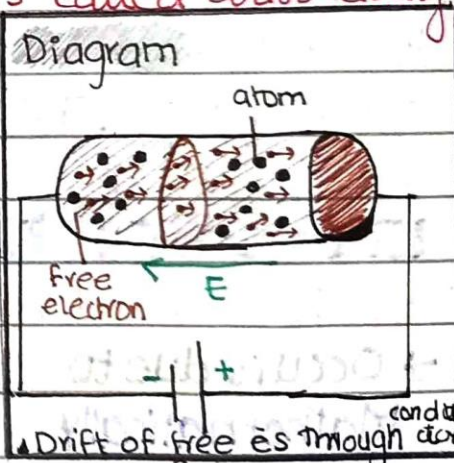 Diagram
atom
free
electron
E
- +
Drift of free ēs through